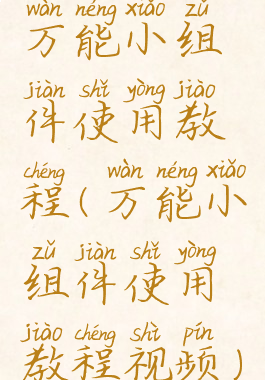 wàn néng xiǎo zǔ
万能小组
jiàn shǐ yòng jiào
件使用教
chéng wàn néng xiǎo
程(万能小
zǔ jiàn shǐ yòng
组件使用
jiào chéng shì pín
教程视频)